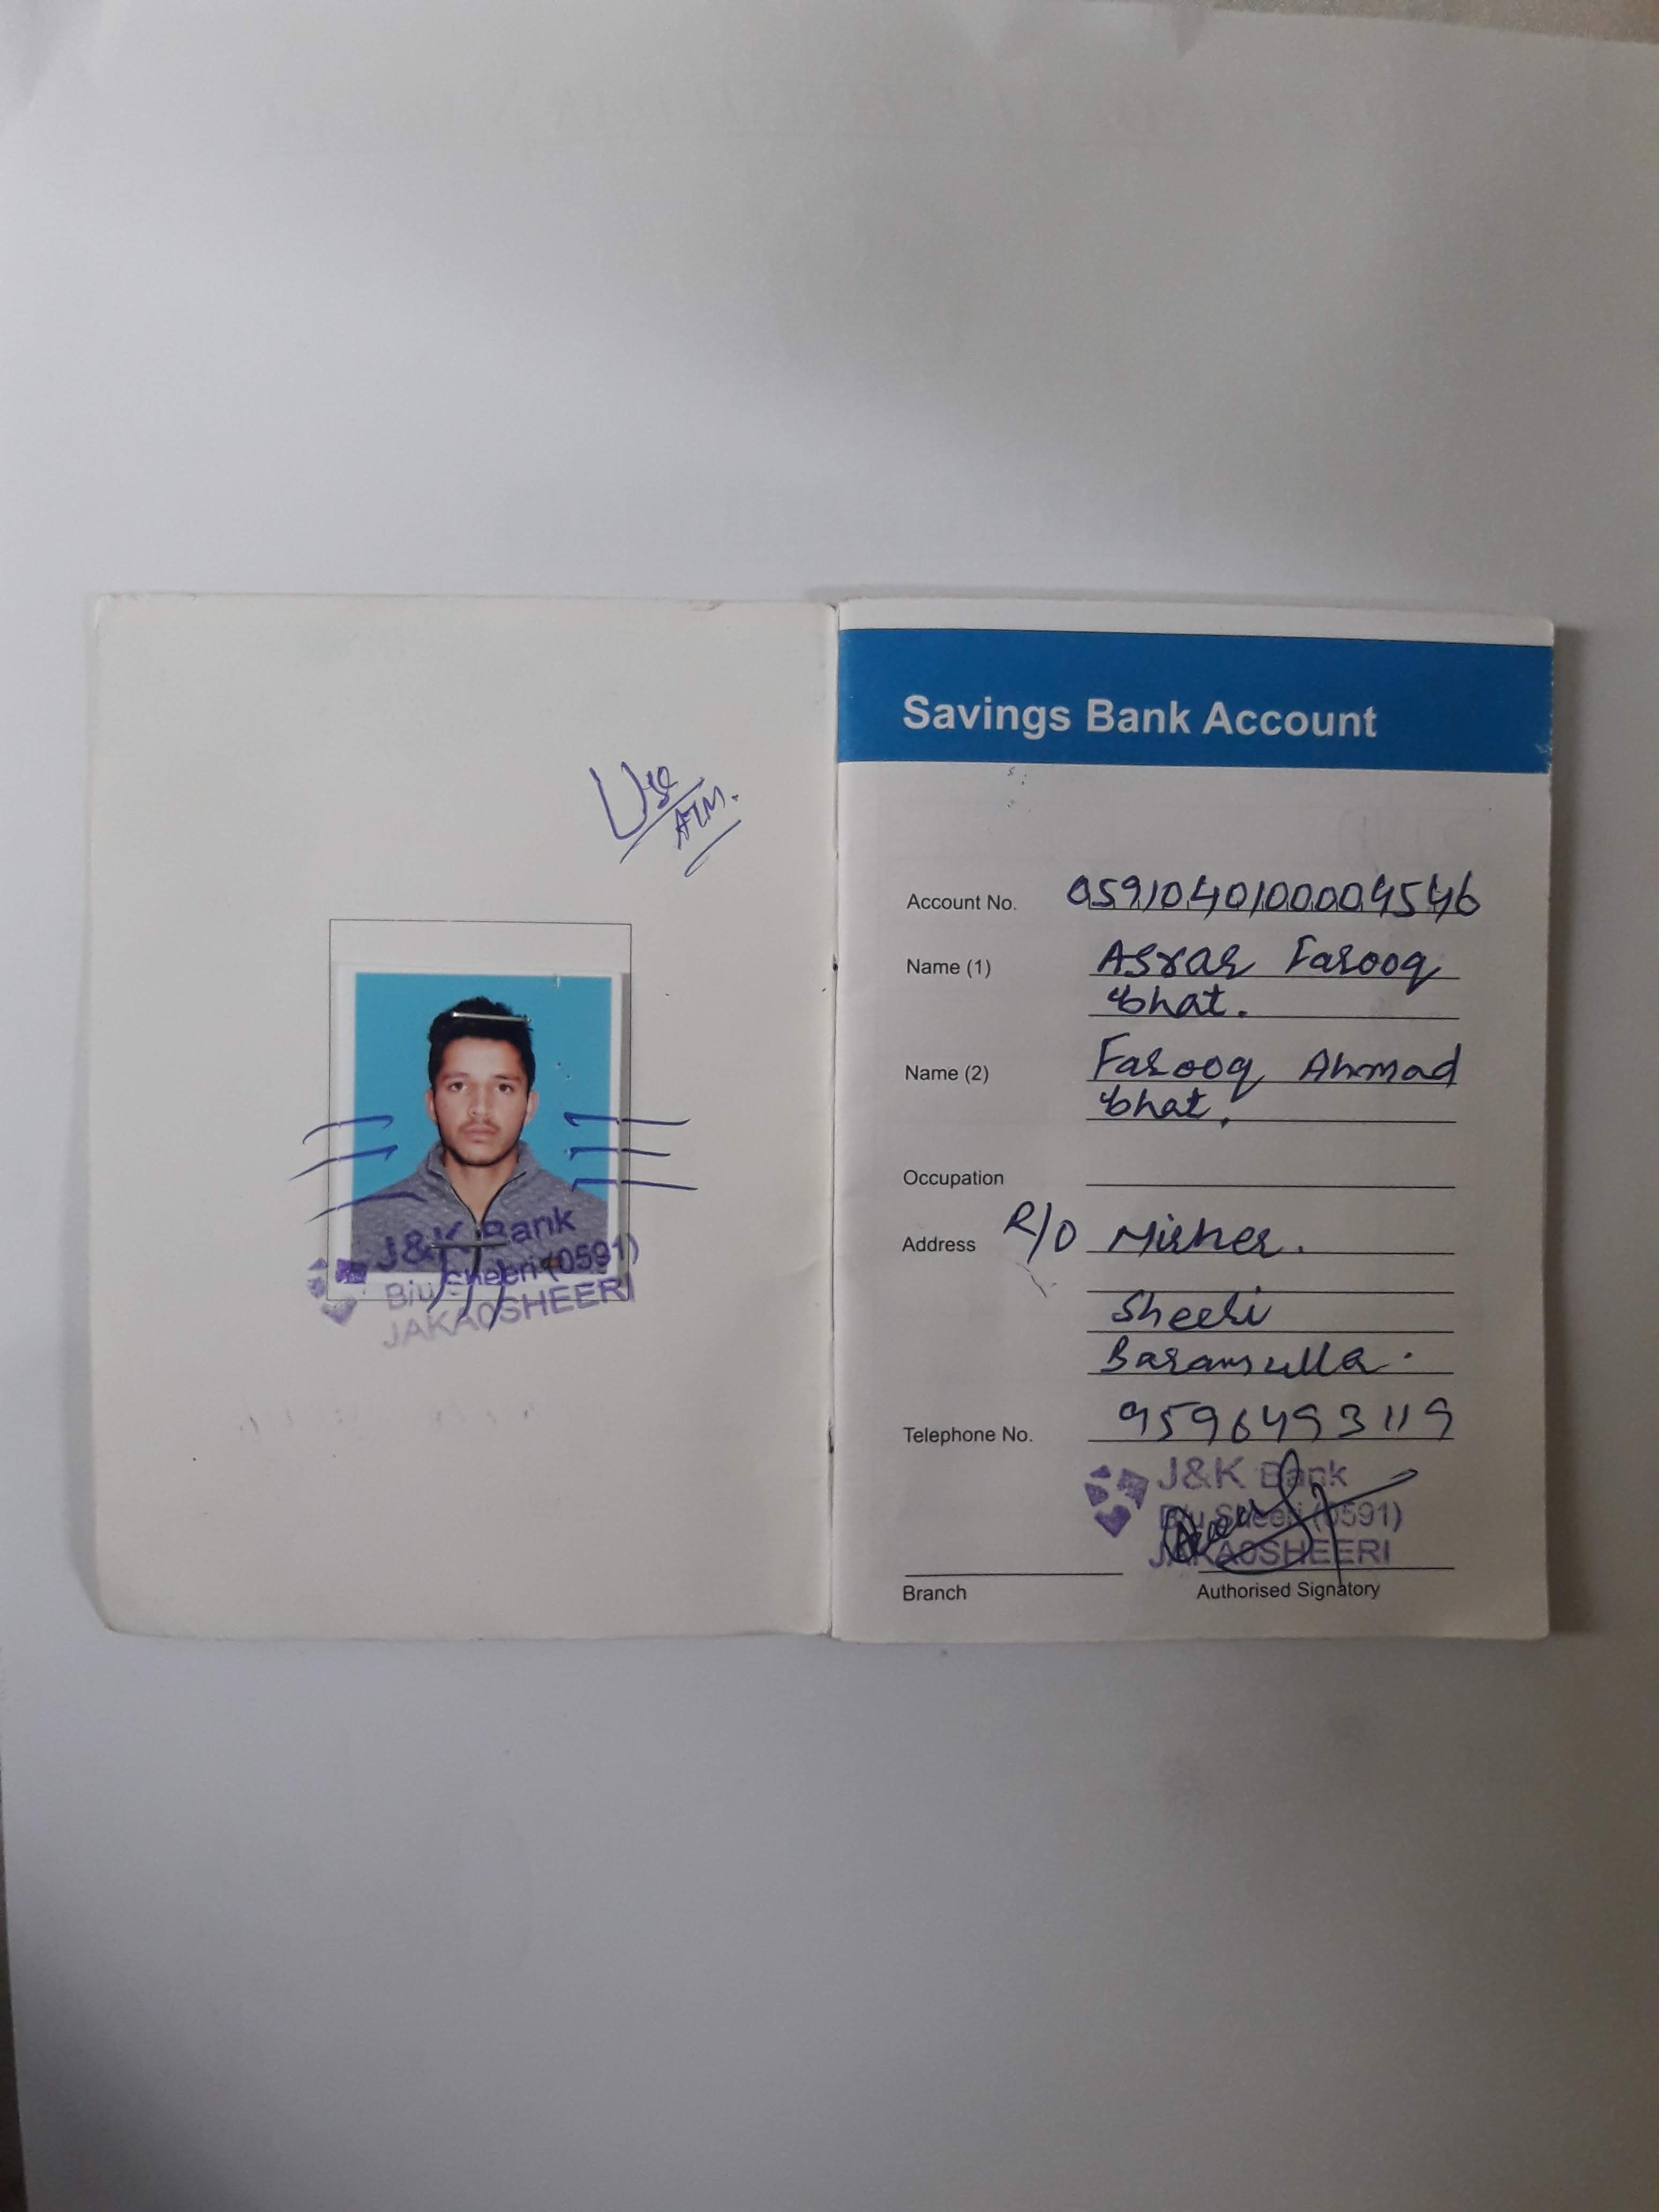 Use
ATM.
J&K Bank
B/u Sheeri (0591)
JAKA0SHEERI
Savings Bank Account
Account No. 0591040100004546
Name (1) Asrar Farooq
bhat.
Name (2) Farooq Ahmad
bhat.
Occupation
Address R/O Mirher.
Sheeri
Baramulla.
Telephone No. 9596493119
J&K Bank
B/u Sheeri (0591)
JAKA0SHEERI
Branch Authorised Signatory